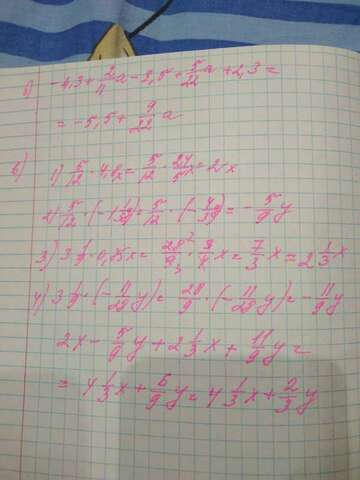 б) -4,3 + 2/11 а - 3,5 + 5/22 а + 2,3 =
= -5,5 + 9/22 а
в) 1) 5/12 · 4,8x = 5/12 · 24/5 x = 2x
2) 5/12 · (-1 1/3 y) = 5/12 · (-4/3 y) = -5/9 y
3) 3 1/9 · 0,75x = 28/9 · 3/4 x = 7/3 x = 2 1/3 x
4) 3 1/9 · (-11/28 y) = 28/9 · (-11/28 y) = -11/9 y
2x - 5/9 y + 2 1/3 x + 11/9 y =
= 4 1/3 x + 6/9 y = 4 1/3 x + 2/3 y